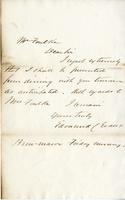 Mr Foulke
Dear Sir
I regret extremely
that I shall be prevented
from dining with you tomorrow
as anticipated. With regards to
Mrs Foulke I remain
Yours truly
Edmund C Evans
Friday evening